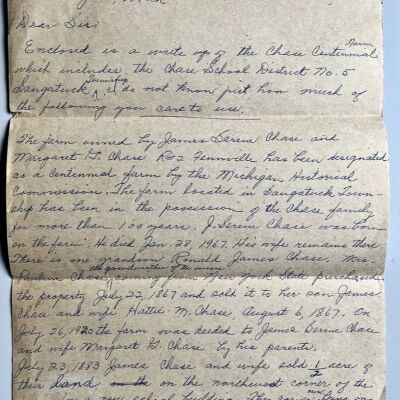 Dear Sir:
Enclosed is a write up of the Chase Centennial Farm
which includes the Chase School District No. 5
Saugatuck Township. I do not know just how much of
the following you care to use.
The farm owned by James Serene Chase and
Margaret G. Chase R#2 Fennville has been designated
as a centennial farm by the Michigan Historical
Commission. The farm located in Saugatuck Town-
ship has been in the possession of the Chase family
for more than 100 years. J. Serene Chase was born
on the farm. He died Jan. 28, 1967. His wife remains there
There is one grandson Ronald James Chase. Mrs.
Chase, the grandmother of coming from New York State purchased
the property July 22, 1867 and sold it to her son James
Chase and wife Hattie M. Chase, August 6, 1867. On
July 26, 1920 the farm was deeded to James Serene Chase
and wife Margaret G. Chase by his parents.
July 23, 1883 James Chase and wife sold 1/2 acre of
their land on the northwest corner of the
for a new school building.